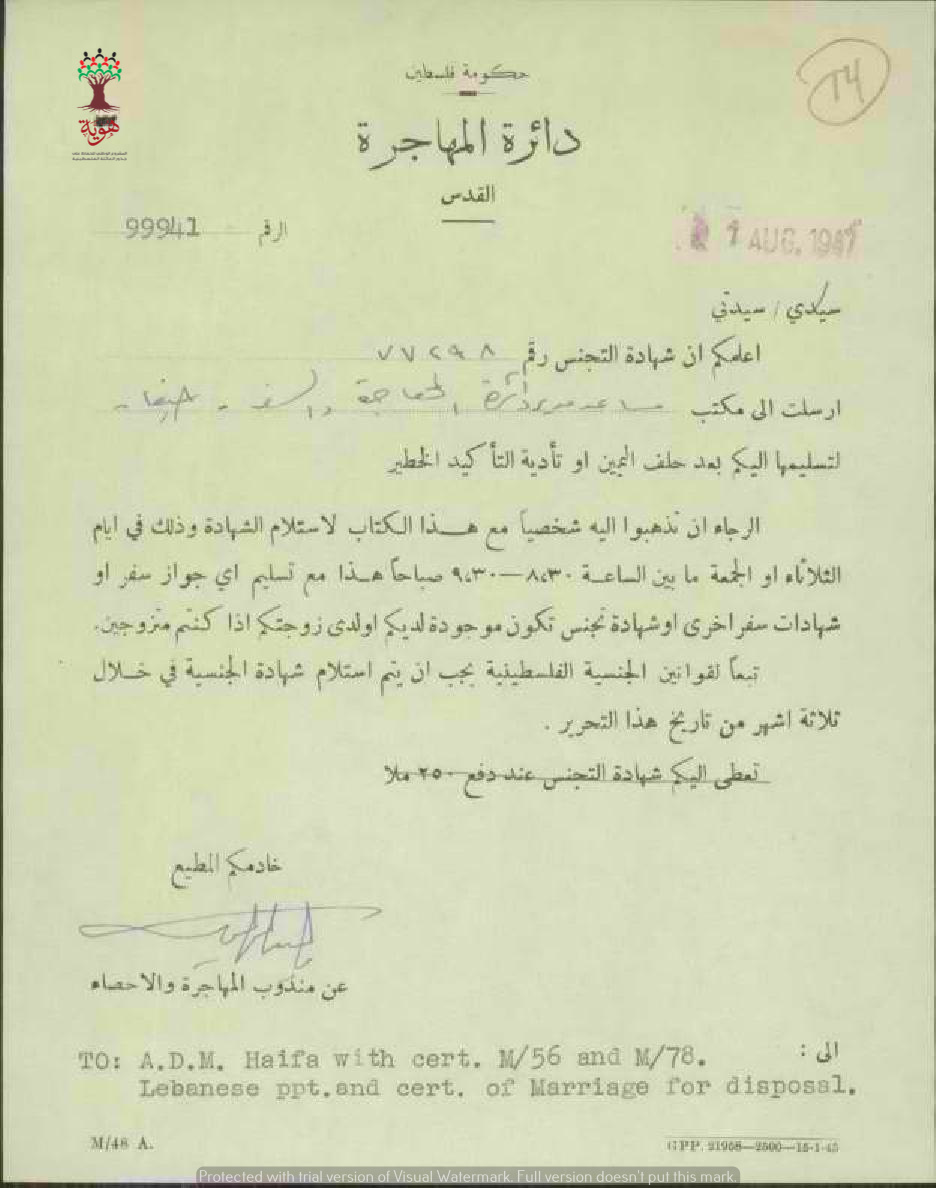 حكومة فلسطين
T4
هوية
دائرة المهاجرة
القدس
الرقم 99941
AUG. 1947
سيدي / سيدتي
اعلمكم ان شهادة التجنس رقم ٧٧٢٩٨
ارسلت الى مكتب مساعد مدير دائرة المهاجرة والسفر - حيفا -
لتسليمها اليكم بعد حلف اليمين او تأدية التأكيد الخطير
الرجاء ان تذهبوا اليه شخصياً مع هـذا الكتاب لاستلام الشهادة وذلك في ايام
الثلاثاء او الجمعة ما بين الساعـة ٨،٣٠—٩،٣٠ صباحاً هـذا مع تسليم اي جواز سفر او
شهادات سفر اخرى او شهادة تجنس تكون موجودة لديكم او لدى زوجتكم اذا كنتم متزوجين.
تبعاً لقوانين الجنسية الفلسطينية يجب ان يتم استلام شهادة الجنسية في خـلال
ثلاثة اشهر من تاريخ هذا التحرير .
تعطى اليكم شهادة التجنس عند دفع ٢٥٠ ملا
خادمكم المطيع
عن مندوب المهاجرة والاحصاء
الى :
TO: A.D.M. Haifa with cert. M/56 and M/78.
Lebanese ppt.and cert. of Marriage for disposal.
M/48 A.
GPP. 21958—2500—15-1-45
Protected with trial version of Visual Watermark. Full version doesn't put this mark.